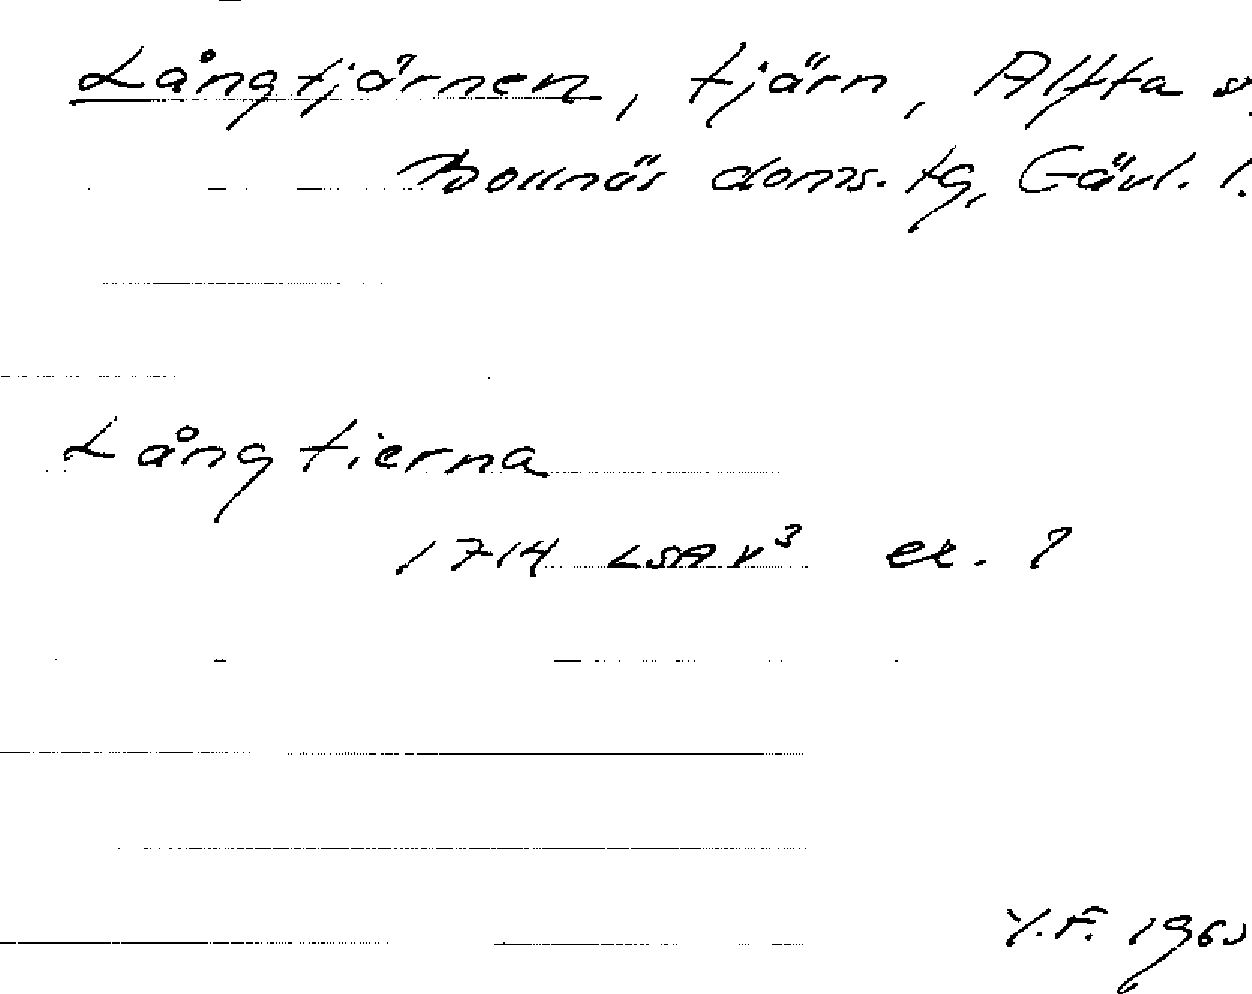 Långtjärnen, tjärn, Alfta s.
Bollnäs doms. tg, Gävl. l.
Lång tierna
1714 LSA V³ ex. ?
Y.F.